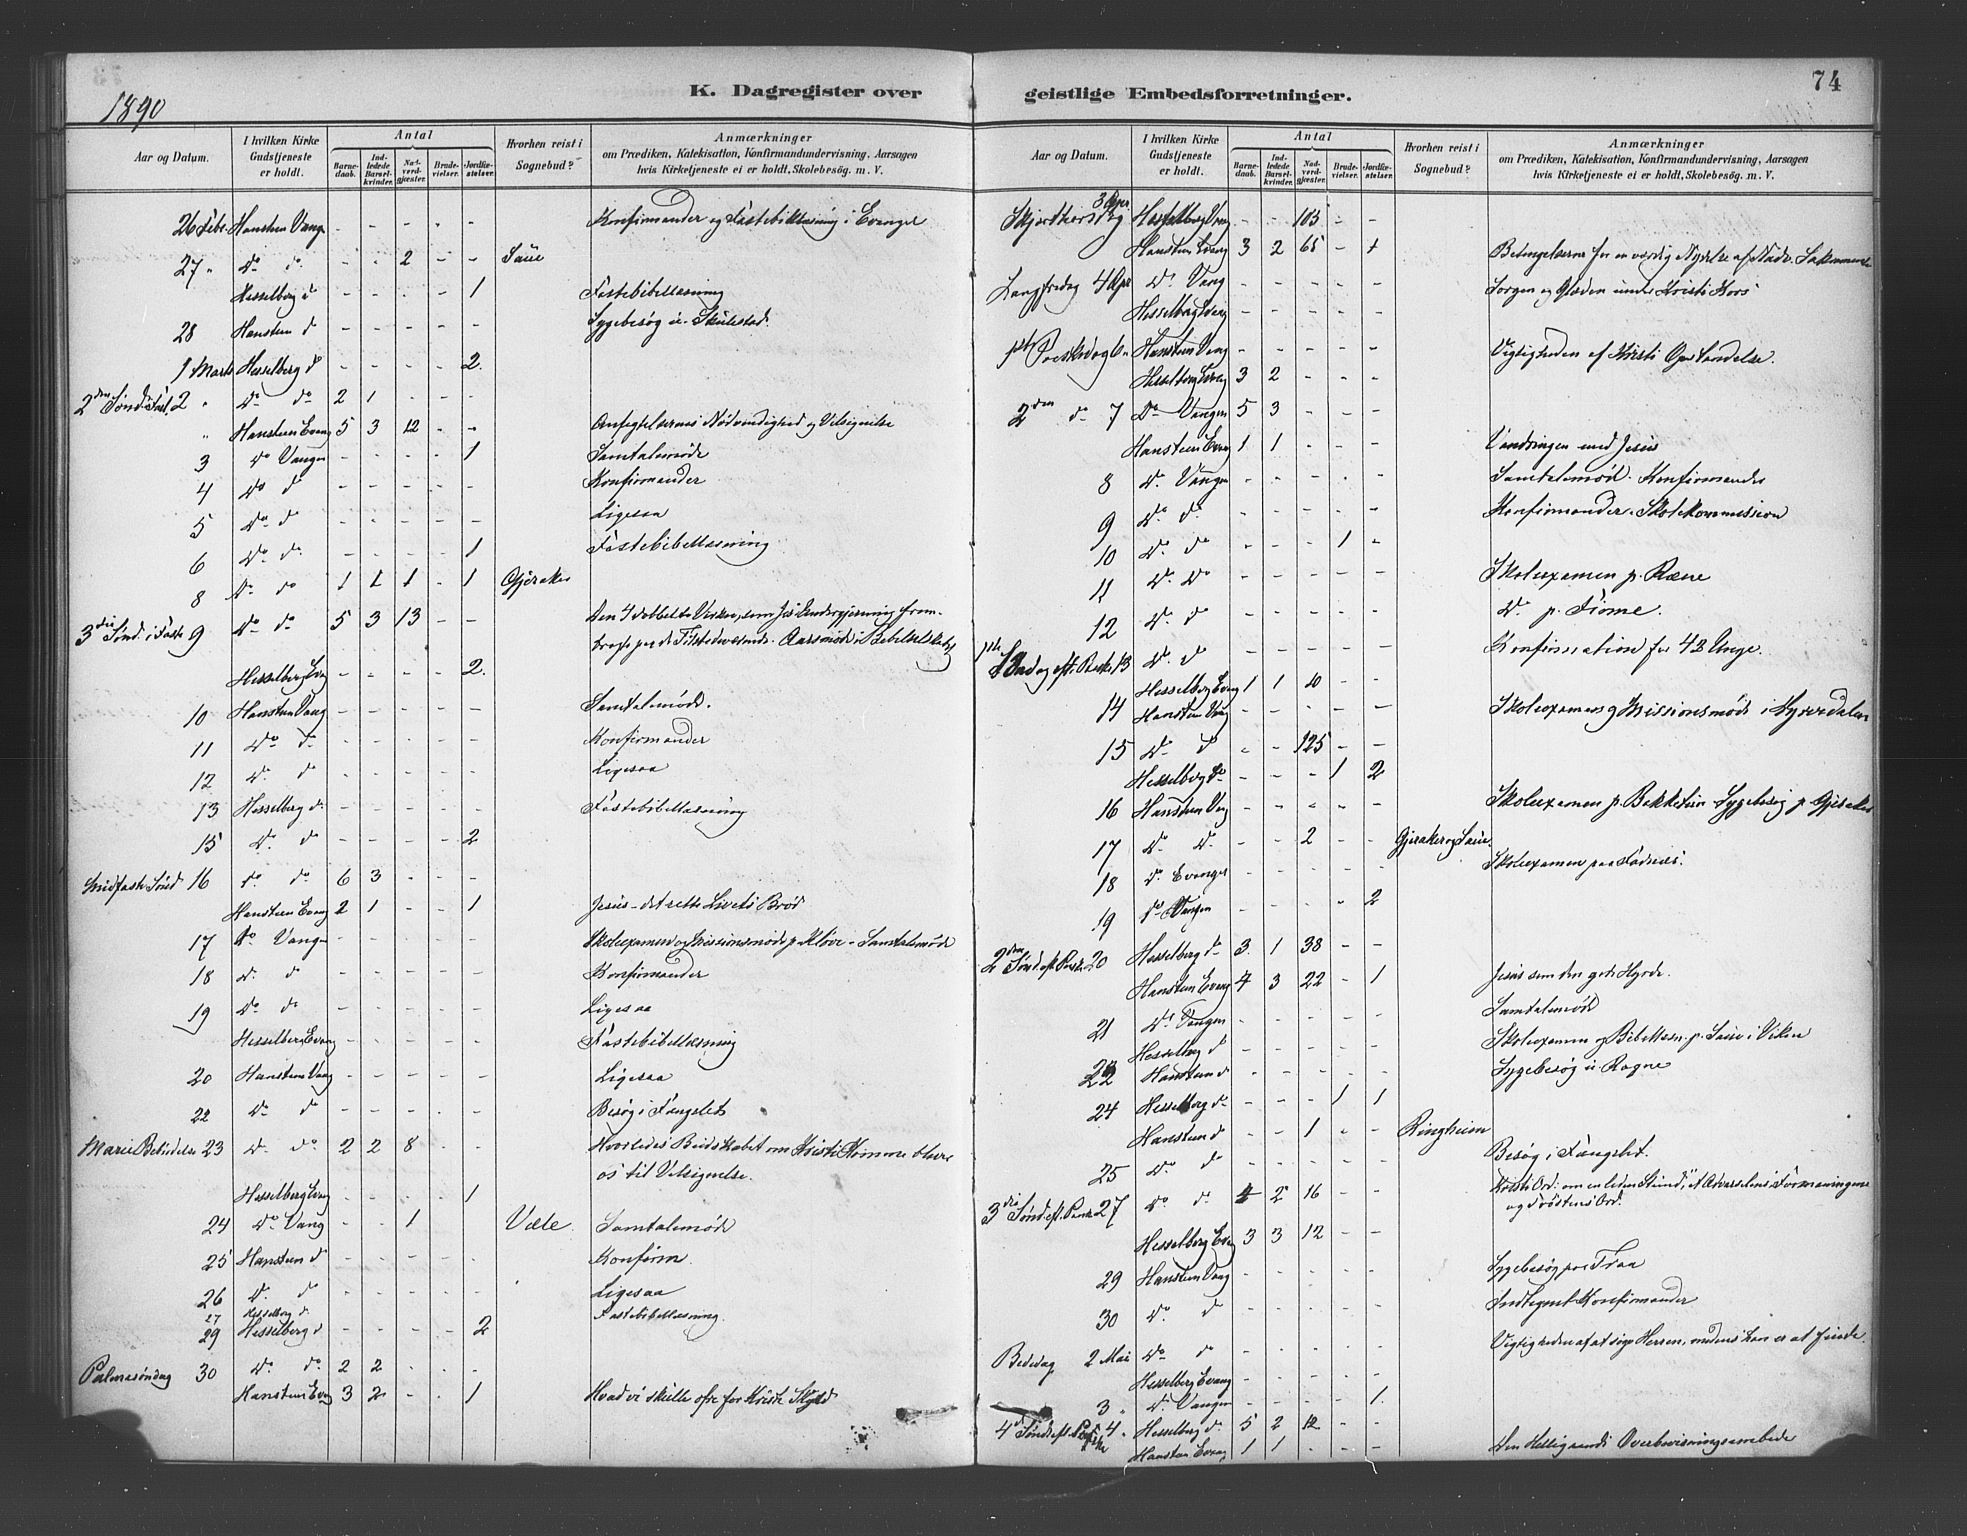 1890
K. Dagregister over
Aar og Datum. I hvilken Kirke Gudstjeneste er holdt. Antal Barnedaab. Indledede Barselkvinder. Nadverdgjæster. Brudevielser. Jordfæstelser. Hvorhen reist i Sognebud? Anmærkninger om Prædiken, Katekisation, Konfirmandundervisning, Aarsagen hvis Kirketjeneste ei er holdt, Skolebesøg. m. V.
26 Febr. Hansteen Vang - - - - - Konfirmander og Fastebibellæsning i Evanger
27 " Do do - - 2 - - Saue
Hesselberg d - - - - 1 Fastebibellæsning
28 Hansteen d - - - - - Sygebesøg u. Skulestad.
1 Marts Hesselberg d - - - - 2.
2den Sønd. i Fast. 2 " Do do 2 1 - - -
" Hansteen Evang 5 3 12 - - Anfægtelsernes Nødvendighed og Velsignelse
3 Do Vangen - - - - 1 Samtalemøde
4 Do d - - - - - Konfirmander
5 Do do - - - - - Ligesaa
6 Do do - - - - 1 Fastebibellæsning
8 Do do 1 1 1 - 1 Gjeraker
3die Sønd. i Faste 9 Do do 5 3 13 - - Den 4 dobbelte Virkn., som Jes. Undergjerning frem-
bragte paa de Tilstedeværende. Aarsmøde i Bibelselskabet
Hesselberg Evang - - - - 2.
10 Hansteen Vang - - - - - Samtalemøde.
11 Do do - - - - - Konfirmander
12 Do do - - - - - Ligesaa
13 Hesselberg do - - - - - Fastebibellæsning
15 Do do - - - - 2
Midfaste Sønd 16 Do do 6 3 - - -
Hansteen Evang 2 1 - - 1 Jesus - det rette Livets Brød
17 Do Vangen - - - - - Skoleexamen og Missionsmøde p. Kløve - Samtalemøde
18 Do d - - - - - Konfirmander
19 Do do - - - - - Ligesaa
Hesselberg Evang - - - - - Fastebibellæsning
20 Hansteen Vang - - - - - Ligesaa
22 Do do - - - - - Besøg i Fængslet
Marie Bebudelse 23 Do do 2 2 8 - - Hvorledes Budskabet om Kristi Komme bliver
os til Velsignelse.
Hesselberg Evang - - - - 1
24 Do Vang - - 1 Væte Samtalemøde
25 Hansteen d - - - - - Konfirm.
26 Do do - - - - - Ligesaa
27 Hesselberg do Fastebibellæsning.
29 Hesselberg d - - - - 2
Palmesøndag 30 Do do 2 2 - - -
Hansteen Evang 3 2 - - 1 Hvad vi skulle ofre for Kristi Skyld
geistlige Embedsforretninger. 74
Aar og Datum. I hvilken Kirke Gudstjeneste er holdt. Antal Barnedaab. Indledede Barselkvinder. Nadverdgjæster. Brudevielser. Jordfæstelser. Hvorhen reist i Sognebud? Anmærkninger om Prædiken, Katekisation, Konfirmandundervisning, Aarsagen hvis Kirketjeneste ei er holdt, Skolebesøg. m. V.
Skjærthorsdag 3 Apr Hesselberg Vang - - 103 - -
Hansteen Evang 3 2 65 - 1 Betingelserne for en værdig Nydelse af Nadv. Sakramente
Langfredag 4 Apr Do Vang - - - - - Sorgen og Glæden under Kristi Kors
Hesselberg Evang - - - - -
1ste Paaskedag 6 " Hansteen Vang - - - - - Vigtigheden af Kristi Opstandelse.
Hesselberg Evang 3 2 - - -
2den do 7 Do Vangen 5 3 - - -
Hansteen Evang 1 1 - - - Vandringen med Jesus
8 Do Vangen - - - - - Samtalemøde. Konfirmander
9 Do do - - - - - Konfirmander. Skolekommission
10 Do do - - - 1 -
11 Do Do - - - - - Skoleexamen p. Ræne
12 Do do - - - - - Do p. Finne.
1ste Søndag eft. Paaske 13 Do do Konfirmation for 42 Unge.
Hesselberg Evang 1 1 10 - -
14 Hansteen Vang - - - - - Skoleexamen og Missionsmøde i Hyrredalen
15 Do do - - 125 - -
Hesselberg do - - - 1 2
16 Hansteen Vang - - - - - Skoleexamen p. Bakketun. Sygebesøg p. Gjeraker
17 Do Do - - 2 - - Gjeraker og Saue.
18 Do Evanger - - - - - Skoleexamen paa Fadnes.
19 Do Vangen - - - - 2
2den Sønd. eft. Paaske 20 Hesselberg do 3 1 38 - -
Hansteen Evang 4 3 22 - 1 Jesus som den gode Hyrde.
21 Do Vangen - - - - - Samtalemøde
Hesselberg d - - - - - Skoleexamen og Bibellæsn. p. Saue i Viken
22 Hansteen d - - - - - Sygebesøg u. Rogne
24 Hesselberg do - - - 1 1
Hansteen d - - 1 - - Ringheim
25 Do do - - - - - Besøg i Fængslet.
3die Sønd. eft. Paaske 27 Do do 4 2 16 - - Kristi Ord: om en liden Stund, et Advarselens, Formaningens
og Trøstens Ord.
Hesselberg Evang 3 3 12 - -
29 Hansteen Vang - - - - - Sygebesøg paa Traa
30 Do do - - - - - Indtegnet Konfirmander
Bededag 2 Mai Do do - - - - - Vigtigheden af at søge Herren, medens han er at finde.
Hesselberg Evang - - - - -
3 " Do Vangen - - - - 1.
4de Sønd. eft. Paaske 4 " Hesselberg do 5 2 12 - -
Hansteen Evang 1 1 - - - Den Helligaands Overbevisningsarbeide